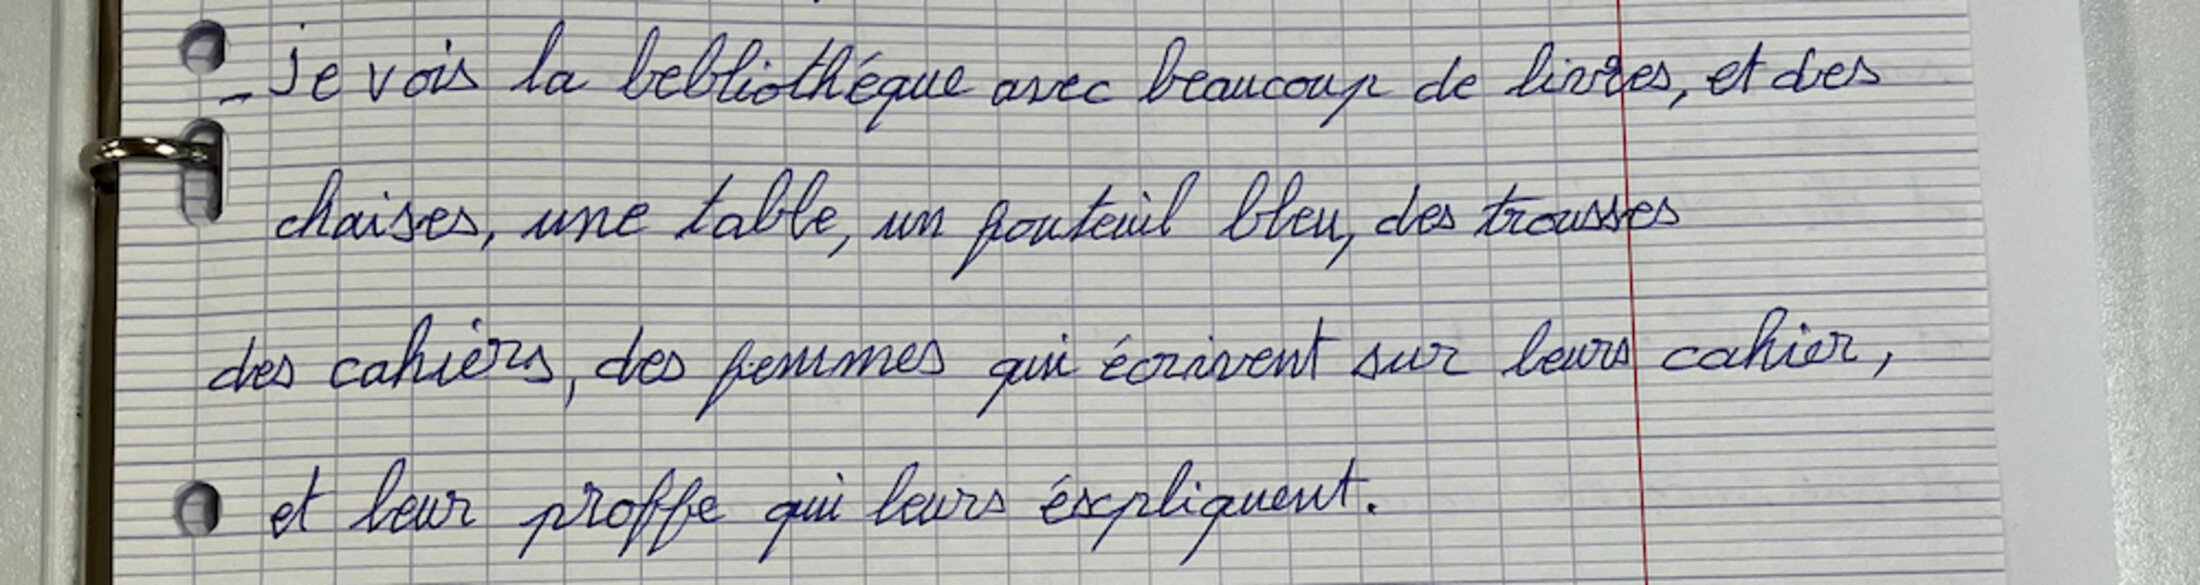 - Je vois la bebliothéque avec beaucoup de livres, et des
chaises, une table, un fouteuil bleu, des trousses
des cahiers, des femmes qui écrivent sur leurs cahier,
et leur proffe qui leurs éxpliquent.